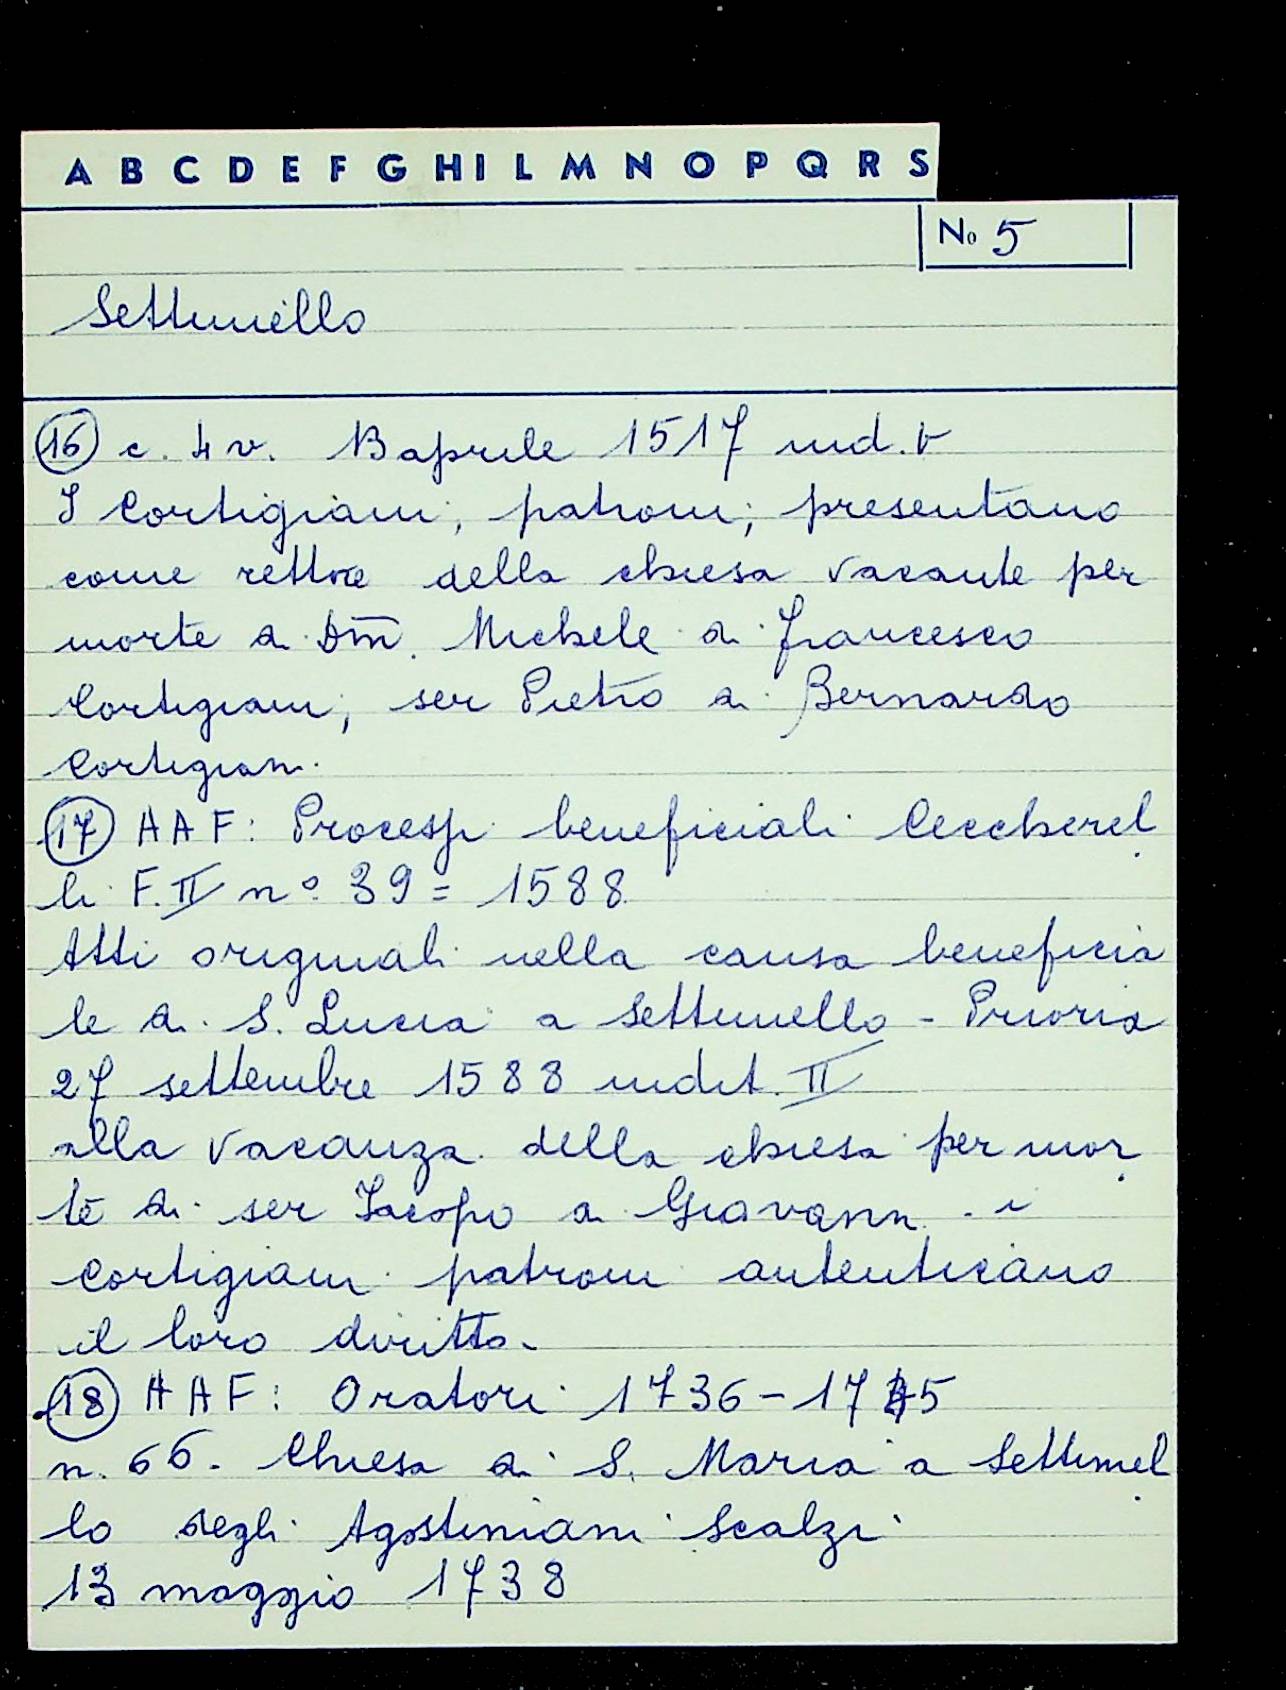 A B C D E F G H I L M N O P Q R S
No 5
Settimello
16 c. 4 v. 13 aprile 1517 ind. V
I Cortigiani, patroni, presentano
come rettore della chiesa vacante per
morte di Dm̄. Michele di Francesco
Cortigiani, ser Pietro di Bernardo
Cortigiani.
17 AAF: Processi beneficiali Ceccherel
li F. II n° 39 = 1588
Atti originali nella causa beneficia
le di S. Lucia a Settimello - Prioria
27 settembre 1588 indit. II
alla vacanza della chiesa per mor
te di ser Jacopo di Giovanni - i
Cortigiani patroni autenticano
il loro diritto.
18 AAF: Oratori 1736-1745
n. 66. Chiesa di S. Maria a Settimel
lo degli Agostiniani Scalzi
13 maggio 1738